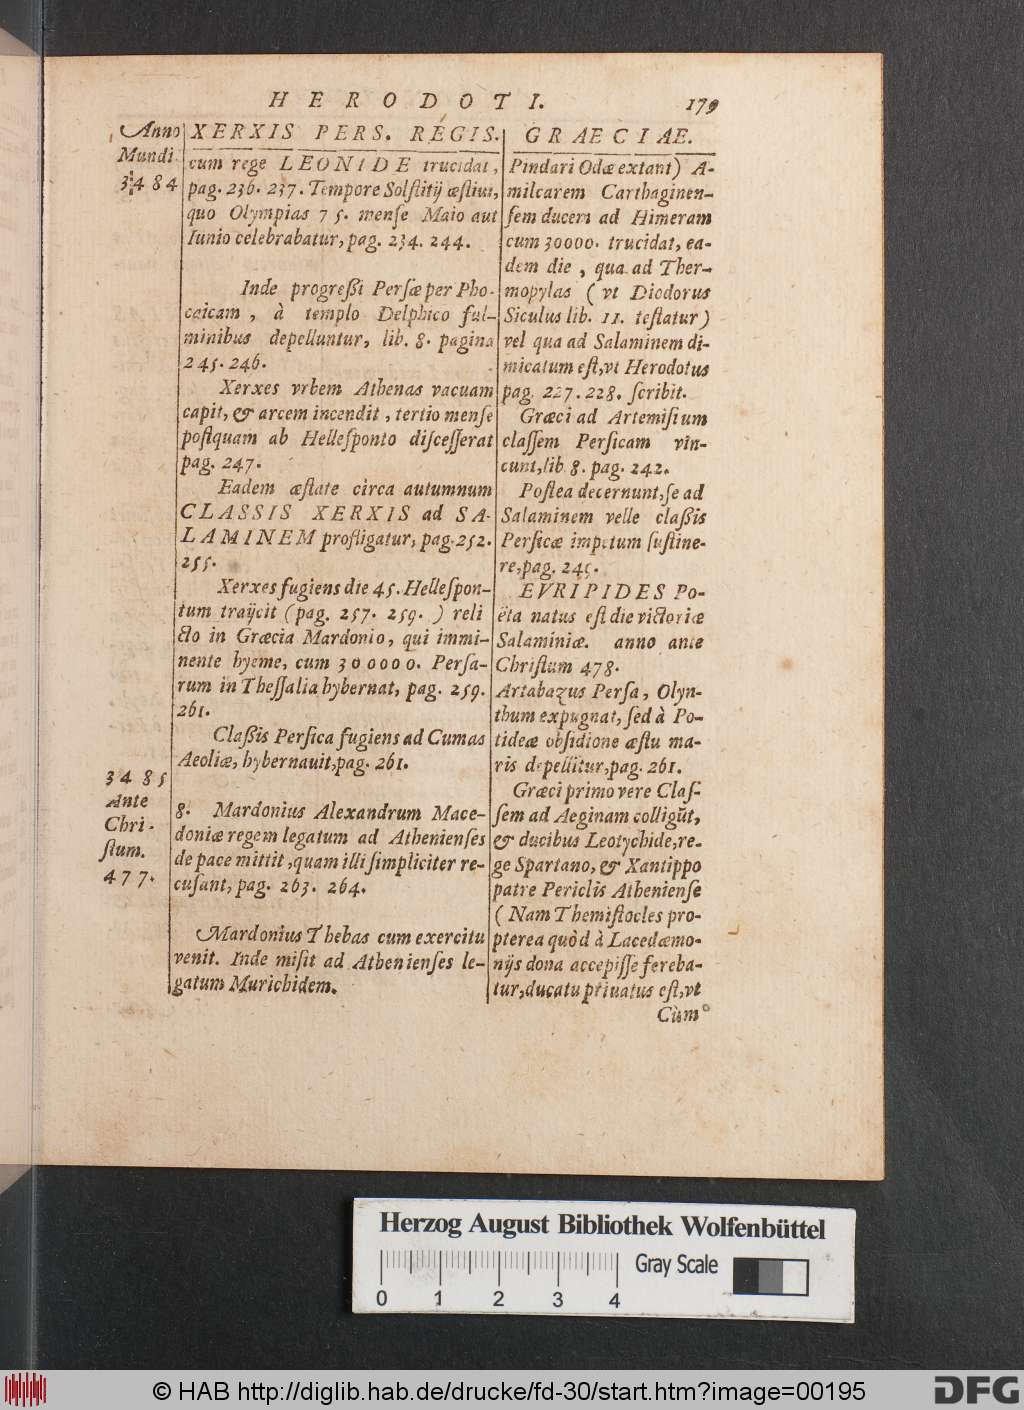 HERODOTI. 179
Anno
Mundi
3484
XERXIS PERS. REGIS.
cum rege LEONIDE trucidat,
pag. 236. 237. Tempore Solſtitij æſtiui,
quo Olympias 75. menſe Maio aut
Iunio celebrabatur, pag. 234. 244.
Inde progreßi Perſæ per Pho-
caicam, à templo Delphico ful-
minibus depelluntur, lib. 8. pagina
245. 246.
Xerxes vrbem Athenas vacuam
capit, & arcem incendit, tertio menſe
poſtquam ab Helleſponto diſceſſerat
pag. 247.
Eadem æſtate circa autumnum
CLASSIS XERXIS ad SA-
LAMINEM profligatur, pag. 252.
255.
Xerxes fugiens die 45. Helleſpon-
tum traijcit (pag. 257. 259.) reli
cto in Græcia Mardonio, qui immi-
nente hyeme, cum 300000. Perſa-
rum in Theſſalia hybernat, pag. 259.
261.
Claßis Perſica fugiens ad Cumas
Aeoliæ, hybernauit, pag. 261.
3485
Ante
Chri-
ſtum.
477.
8. Mardonius Alexandrum Mace-
doniæ regem legatum ad Athenienſes
de pace mittit, quam illi ſimpliciter re-
cuſant, pag. 263. 264.
Mardonius Thebas cum exercitu
venit. Inde miſit ad Athenienſes le-
gatum Murichidem.
GRAECIAE.
Pindari Odæ extant) A-
milcarem Carthaginen-
ſem ducem ad Himeram
cum 30000. trucidat, ea-
dem die, qua ad Ther-
mopylas (vt Diodorus
Siculus lib. 11. teſtatur)
vel qua ad Salaminem di-
micatum eſt, vt Herodotus
pag. 227. 228. ſcribit.
Græci ad Artemiſium
claſſem Perſicam vin-
cunt, lib. 8. pag. 242.
Poſtea decernunt, ſe ad
Salaminem velle claßis
Perſicæ impetum ſuſtine-
re, pag. 245.
EVRIPIDES Po-
ëta natus eſt die victoriæ
Salaminiæ. anno ante
Chriſtum 478.
Artabazus Perſa, Olyn-
thum expugnat, ſed à Po-
tideæ obſidione æſtu ma-
ris depellitur, pag. 261.
Græci primo vere Claſ-
ſem ad Aeginam colligūt,
& ducibus Leotychide, re-
ge Spartano, & Xantippo
patre Periclis Athenienſe
(Nam Themiſtocles pro-
pterea quòd à Lacedæmo-
nijs dona accepiſſe fereba-
tur, ducatu priuatus eſt, vt
Cùm
Herzog August Bibliothek Wolfenbüttel
Gray Scale
0 1 2 3 4
© HAB http://diglib.hab.de/drucke/fd-30/start.htm?image=00195
DFG